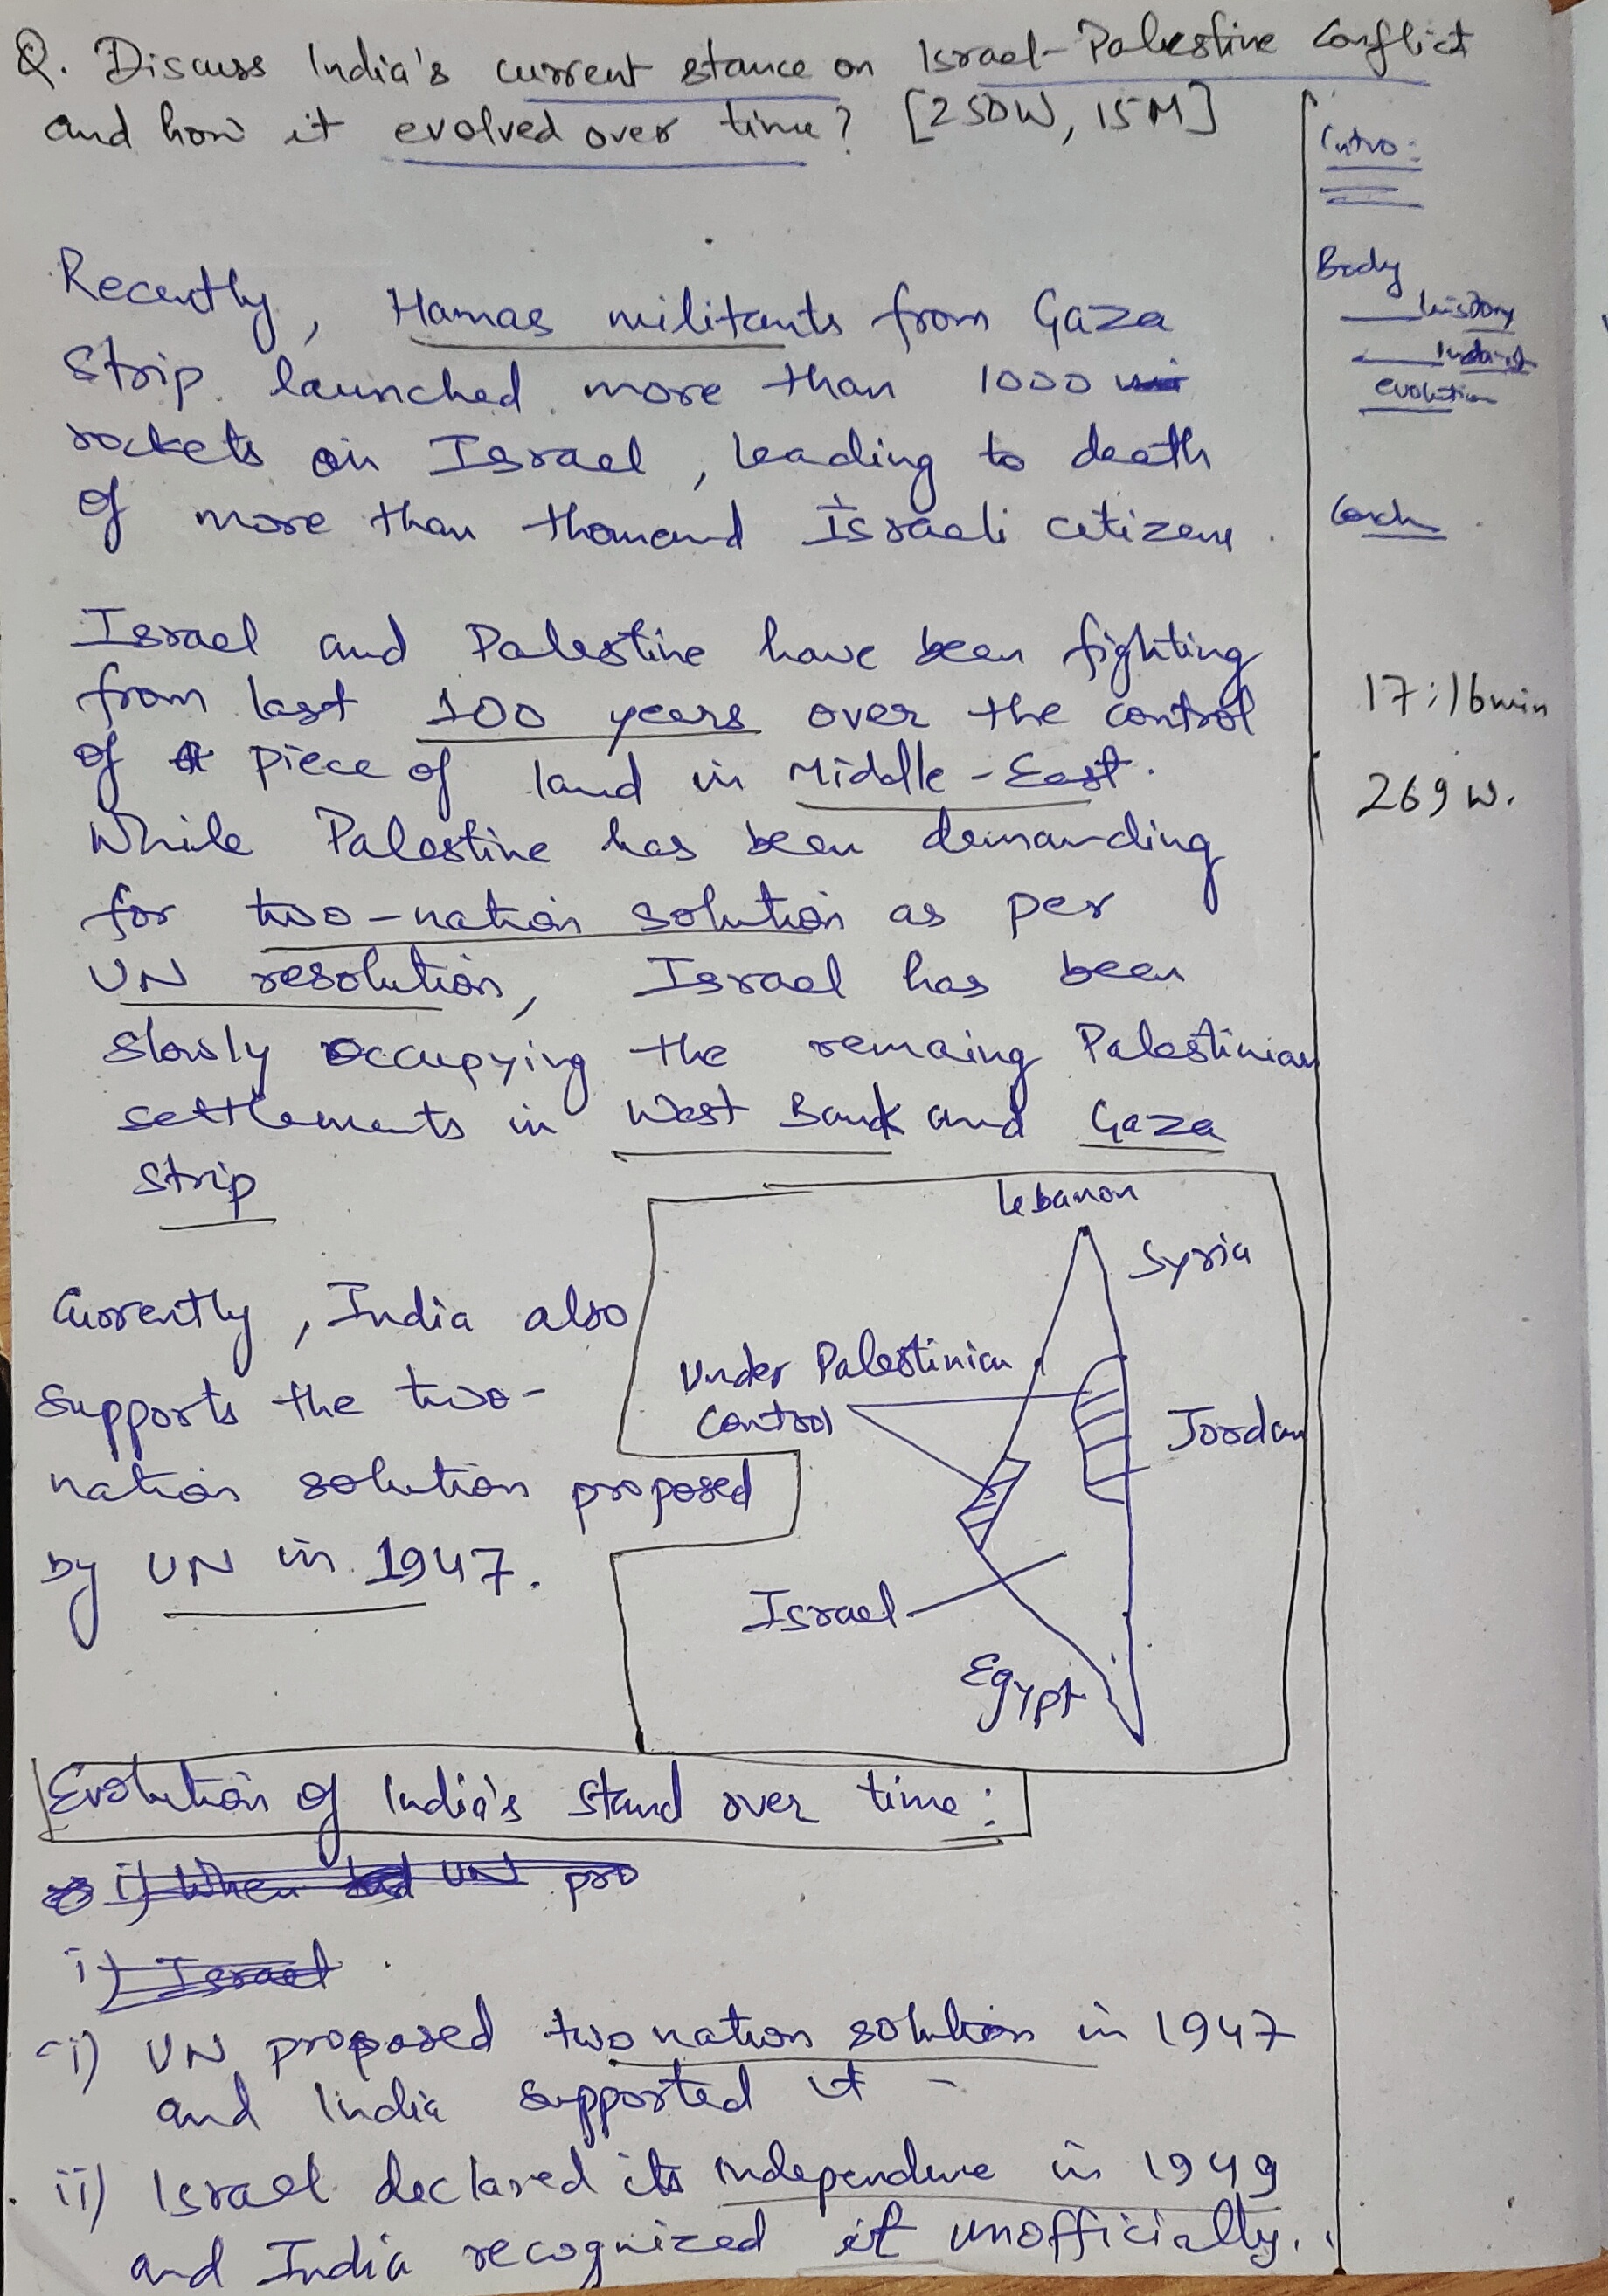 Q. Discuss India's current stance on Israel-Palestine Conflict
and how it evolved over time? [250W, 15M]
Intro:
Body
history
evolution
17:16min
269 W.
Recently, Hamas militants from Gaza
Strip launched more than 1000
rockets on Israel, leading to death
of more than thousand Israeli citizens.
Israel and Palestine have been fighting
from last 100 years over the control
of piece of land in Middle-East.
While Palestine has been demanding
for two-nation solution as per
UN resolution, Israel has been
slowly occupying the remaing Palestinian
settlements in West Bank and Gaza
Strip
Currently, India also
supports the two-
nation solution proposed
by UN in 1947.
Lebanon
Syria
Under Palestinian
Control
Jordan
Israel
Egypt
Evolution of India's Stand over time:
i) When UN pro
i) Israel
i) UN proposed two nation solution in 1947
and India supported it -
ii) Israel declared its independence in 1949
and India recognized it unofficially.